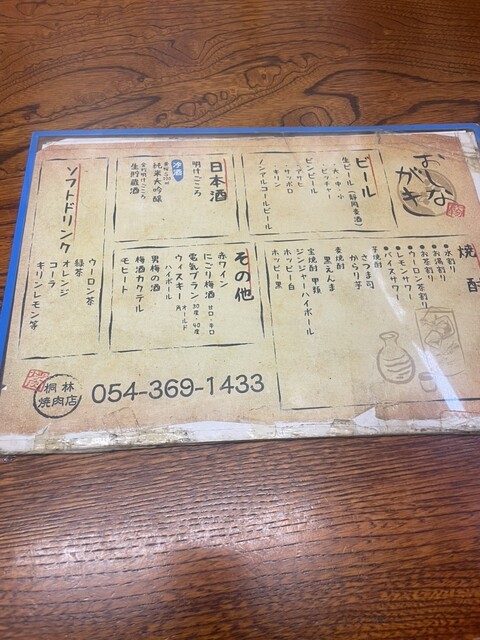 おしながき
ビール
生ビール(静岡麦酒)
大・中・小
ピッチャー
ビンビール
アサヒ
サッポロ
キリン
ノンアルコールビール
日本酒
明けごころ
冷酒
純米大吟醸
生貯蔵酒
ソフトドリンク
ウーロン茶
緑茶
オレンジ
コーラ
キリンレモン等
焼酎
●水割り
●お湯割り
●お茶割り
●ウーロン茶割り
●レモンサワー
●バイスサワー
芋焼酎
さつま司
からり芋
麦焼酎
黒えんま
宝焼酎 甲類
ジンジャーハイボール
ホッピー白
ホッピー黒
その他
赤ワイン
にごり梅酒 甘口・辛口
電気ブラン 30度・40度
ウイスキー オールド 角
ハイボール
男梅の酒
梅酒カクテル
モヒート
桐林
焼肉店
054-369-1433